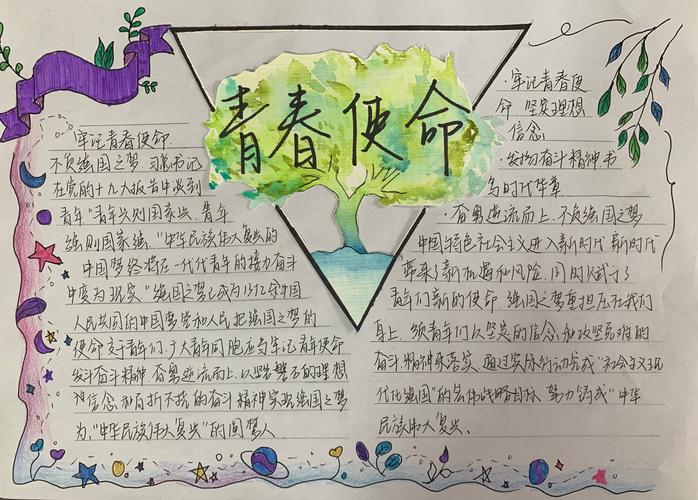 青春使命
牢记青春使命
不负强国之梦 习总书记
在党的十九大报告中谈到
青年"青年兴则国家兴,青年
强则国家强."中华民族伟大复兴的
中国梦终将在一代代青年的接力奋斗
中变为现实"强国之梦已成为13亿中国
人民共同的中国梦 党和人民把强国之梦的
使命交于青年们,广大青年同胞应当牢记青年使命
发斗奋斗精神.奋勇逆流而上.以坚如磐石的理想
信念和百折不挠的奋斗精神实现强国之梦
为"中华民族伟大复兴"的圆梦人.
·牢记青春使
命 坚定理想
信念
·发扬奋斗精神书
写时代华章
·奋勇逆流而上.不负强国之梦
中国特色社会主义进入新时代 新时代
带来了新机遇和风险 同时赋予了
青年们新的使命 强国之梦重担压在我们
身上.须青年们以坚定的信念和攻坚克难的
奋斗精神来落实.通过实际行动完成"社会主义现
代化强国"的宏伟战略目标 努力完成"中华
民族伟大复兴.